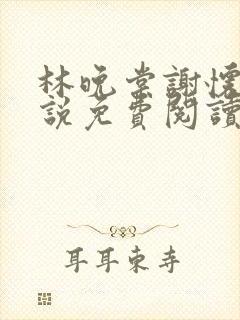 林晚棠謝懷
說免費閱讀
耳耳東寺